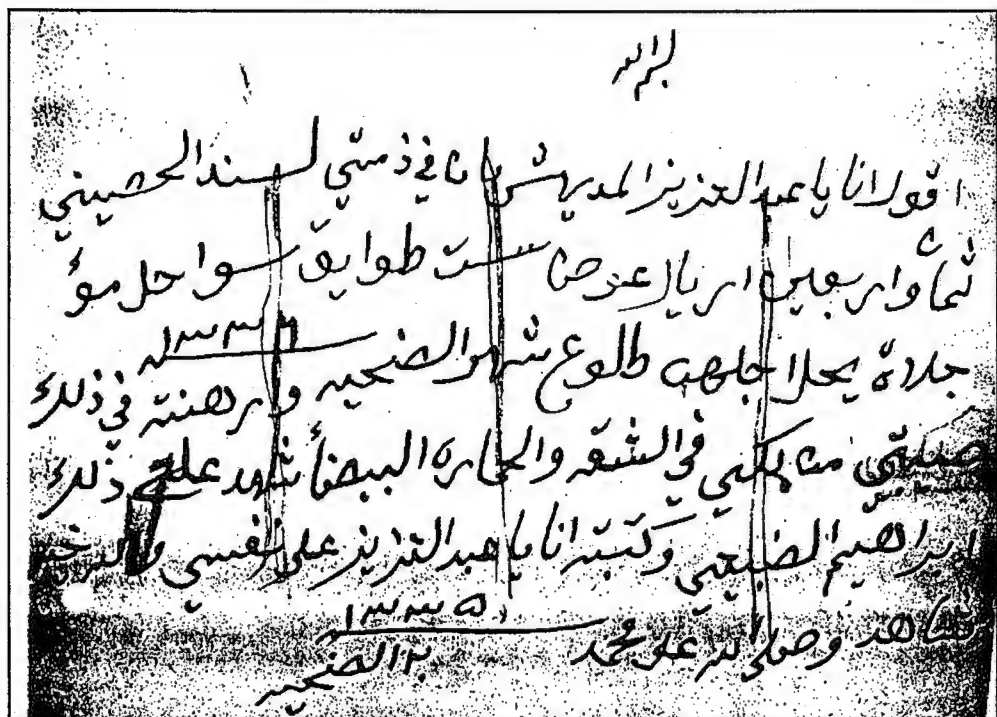 بسم الله
اقول انا يا عبد العزيز المديهش بان في ذمتي لسند الحصيني
ثمان واربعين اريال عوض ست طوايق سواحل مؤ
جلاة يحل اجلهن طلوع شهر الضحيه ١٣٣٦ وارهنته في ذلك
من ملكي في الشقه والحماره البيضأ شهد علي ذلك
ابراهيم الضبيعي وكتبته انا يا عبد العزيز على نفسي والله خير
شاهد وصلى الله على محمد ١٣٣٥
الضحيه